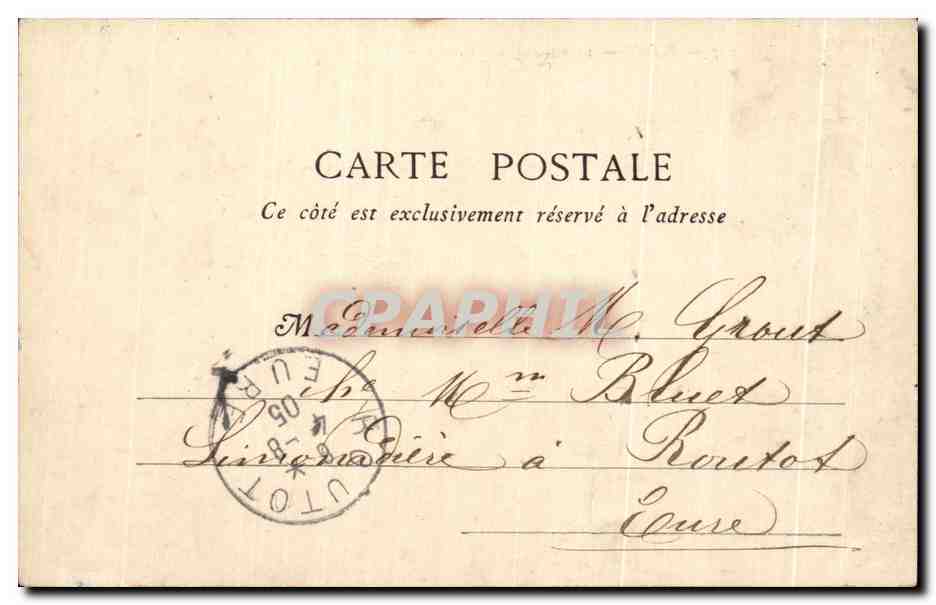 CARTE POSTALE
Ce côté est exclusivement réservé à l'adresse
CPAPHIL
Mademoiselle M. Grout
che Mm Bluet
Limonadière à Routot
Eure
ROUTOT
EURE
4 -8
05